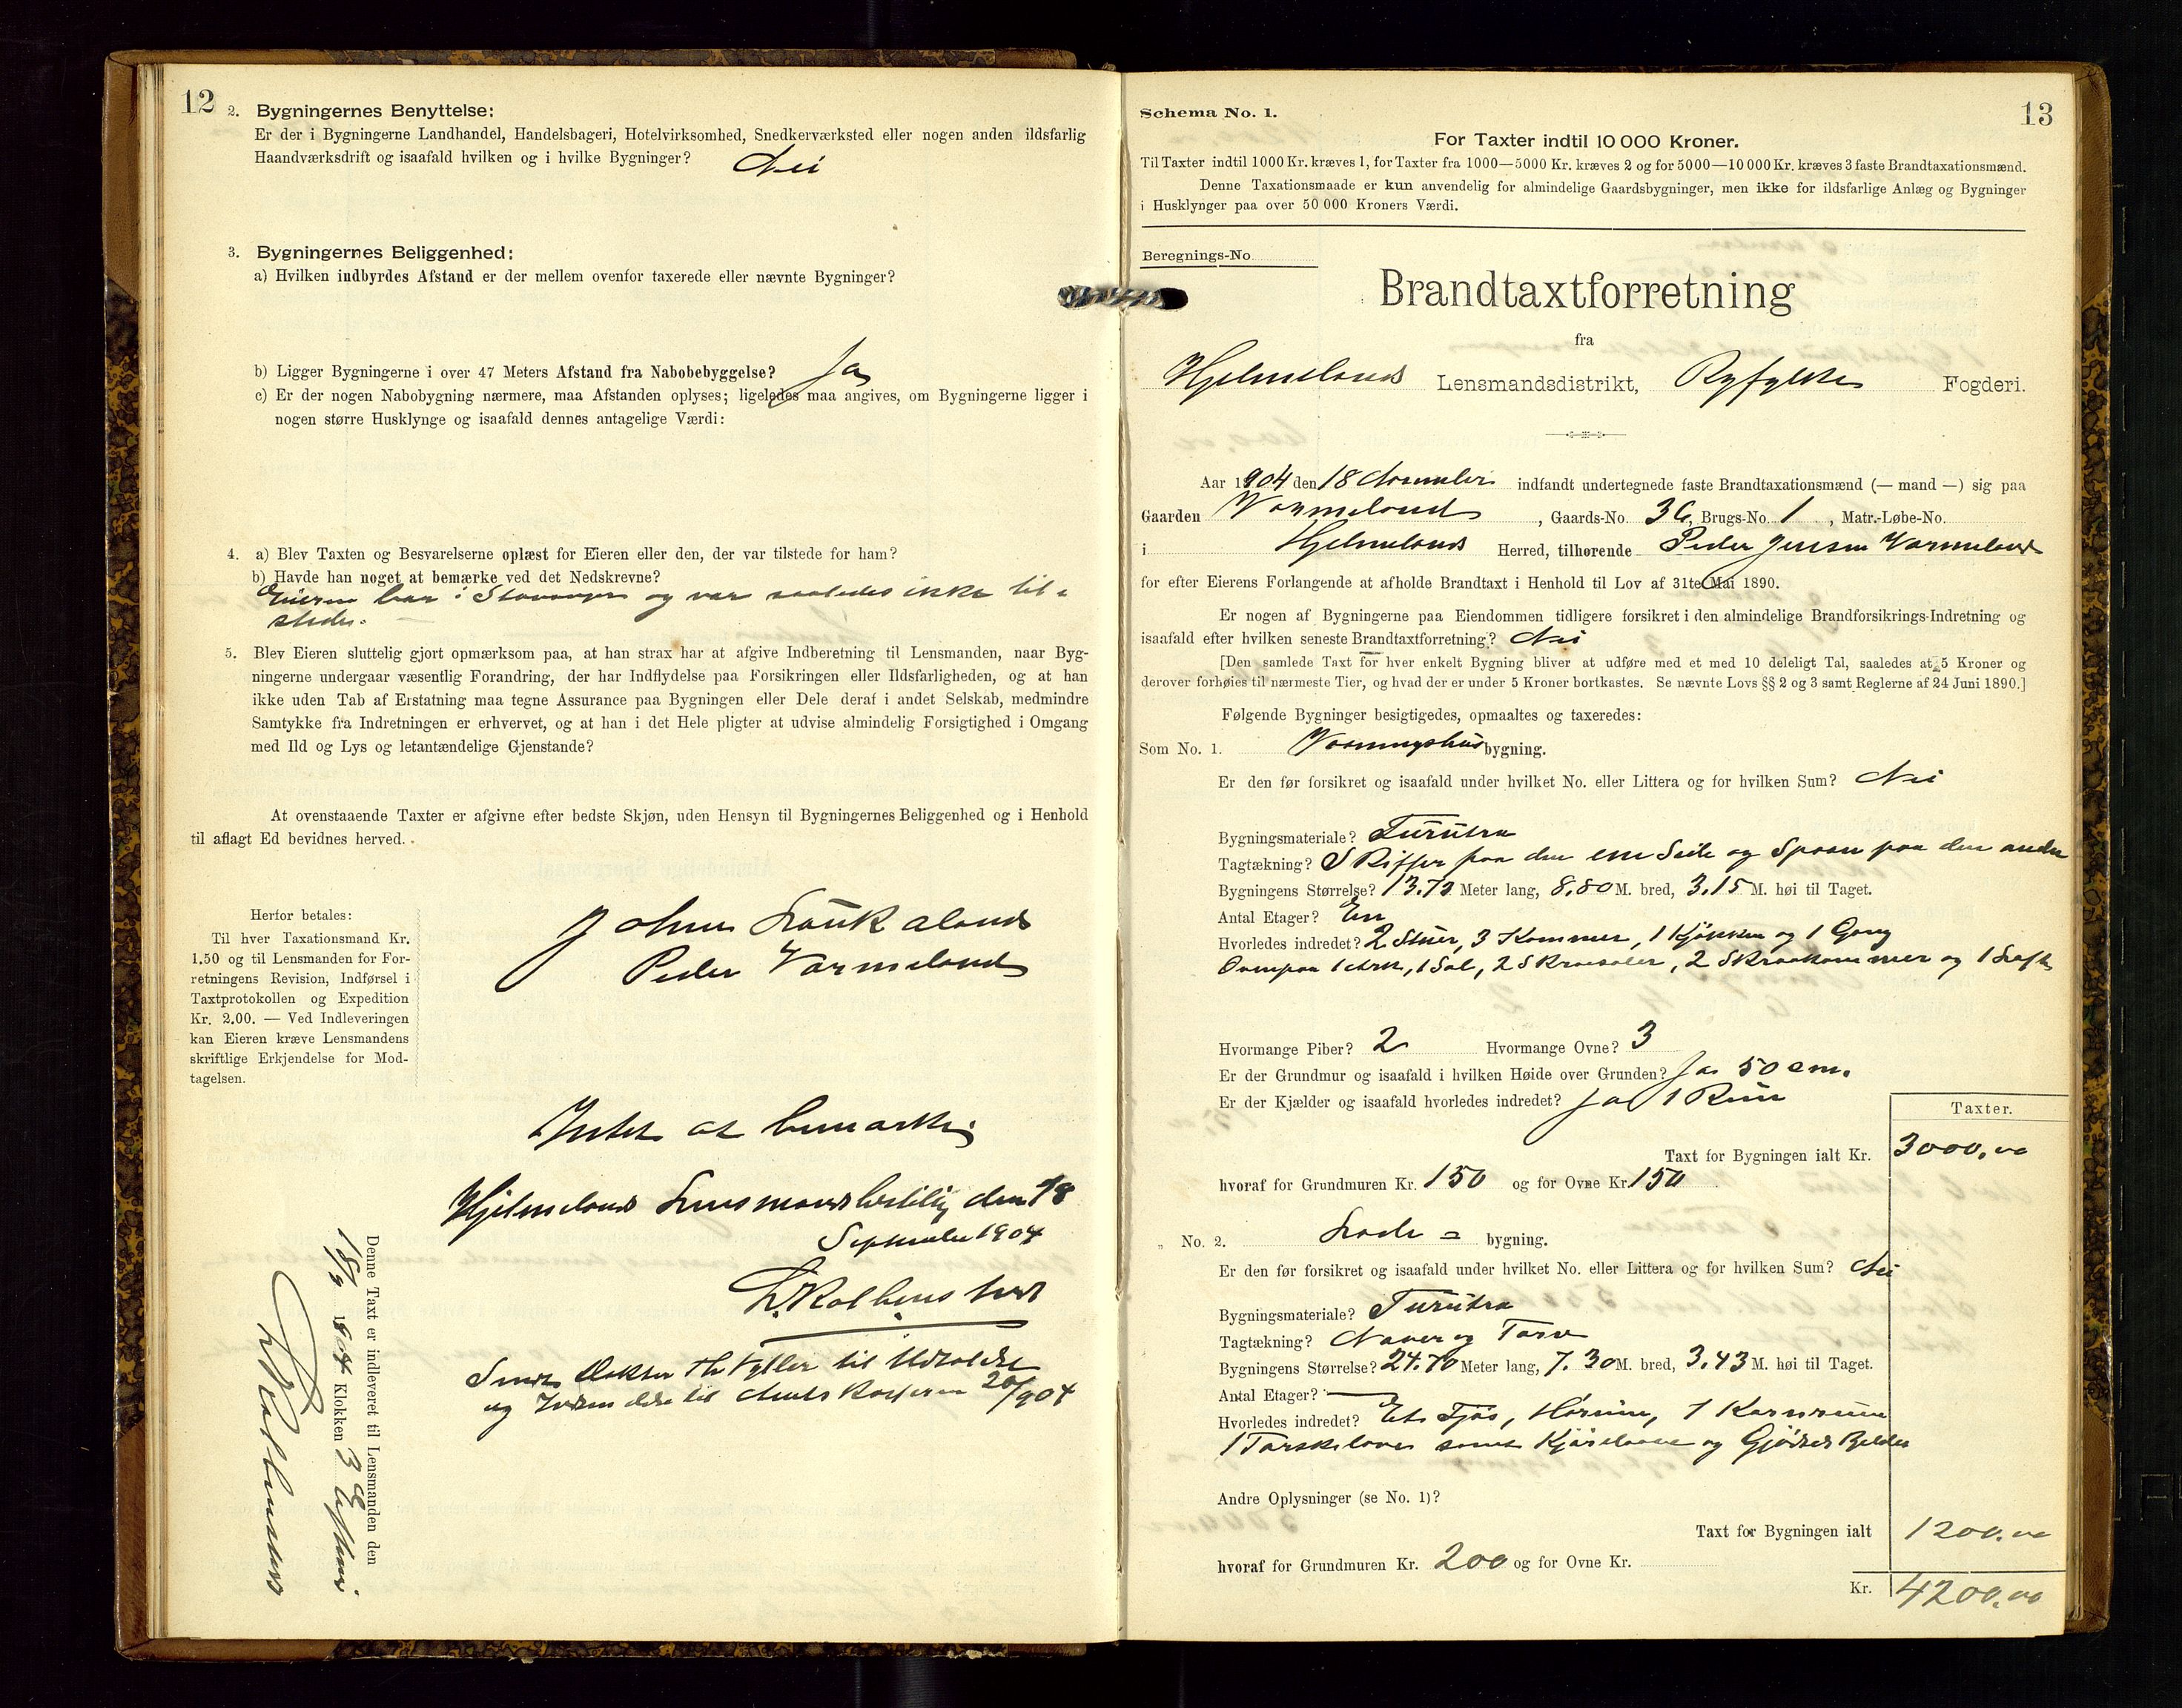 12
2. Bygningernes Benyttelse:
Er der i Bygningerne Landhandel, Handelsbageri, Hotelvirksomhed, Snedkerværksted eller nogen anden ildsfarlig
Haandværksdrift og isaafald hvilken og i hvilke Bygninger? Nei
3. Bygningernes Beliggenhed:
a) Hvilken indbyrdes Afstand er der mellem ovenfor taxerede eller nævnte Bygninger?
b) Ligger Bygningerne i over 47 Meters Afstand fra Nabobebyggelse? Ja
c) Er der nogen Nabobygning nærmere, maa Afstanden oplyses; ligeledes maa angives, om Bygningerne ligger i
nogen større Husklynge og isaafald dennes antagelige Værdi:
4. a) Blev Taxten og Besvarelserne oplæst for Eieren eller den, der var tilstede for ham?
b) Havde han noget at bemærke ved det Nedskrevne?
Eieren bor i Stavanger og var saaledes ikke til-
stede.
5. Blev Eieren sluttelig gjort opmærksom paa, at han strax har at afgive Indberetning til Lensmanden, naar Byg-
ningerne undergaar væsentlig Forandring, der har Indflydelse paa Forsikringen eller Ildsfarligheden, og at han
ikke uden Tab af Erstatning maa tegne Assurance paa Bygningen eller Dele deraf i andet Selskab, medmindre
Samtykke fra Indretningen er erhvervet, og at han i det Hele pligter at udvise almindelig Forsigtighed i Omgang
med Ild og Lys og letantændelige Gjenstande?
At ovenstaaende Taxter er afgivne efter bedste Skjøn, uden Hensyn til Bygningernes Beliggenhed og i Henhold
til aflagt Ed bevidnes herved.
Herfor betales:
Til hver Taxationsmand Kr.
1.50 og til Lensmanden for For-
retningens Revision, Indførsel i
Taxtprotokollen og Expedition
Kr. 2.00. — Ved Indleveringen
kan Eieren kræve Lensmandens
skriftlige Erkjendelse for Mod-
tagelsen.
John Laukaland
Peder Vormeland
Intet at bemærke.
Hjelmelands Lensmandsbestilling den 18
September 1904
Sendt til
og 20/9 04
Denne Taxt er indleveret til Lensmanden den
18/9 1904 Klokken 3 Efterm
13
Schema No. 1.
For Taxter indtil 10 000 Kroner.
Til Taxter indtil 1000 Kr. kræves 1, for Taxter fra 1000—5000 Kr. kræves 2 og for 5000—10 000 Kr. kræves 3 faste Brandtaxationsmænd.
Denne Taxationsmaade er kun anvendelig for almindelige Gaardsbygninger, men ikke for ildsfarlige Anlæg og Bygninger
i Husklynger paa over 50 000 Kroners Værdi.
Beregnings-No
Brandtaxtforretning
fra
Hjelmelands Lensmandsdistrikt, Ryfylke Fogderi.
Aar 1904 den 18 indfandt undertegnede faste Brandtaxationsmænd (— mand —) sig paa
Gaarden Vormeland, Gaards-No. 36, Brugs-No. 1, Matr.-Løbe-No.
i Hjelmelands Herred, tilhørende Peder Jensen Vormeland
for efter Eierens Forlangende at afholde Brandtaxt i Henhold til Lov af 31te Mai 1890.
Er nogen af Bygningerne paa Eiendommen tidligere forsikret i den almindelige Brandforsikrings-Indretning og
isaafald efter hvilken seneste Brandtaxtforretning? Nei
[Den samlede Taxt for hver enkelt Bygning bliver at udføre med et med 10 deleligt Tal, saaledes at 5 Kroner og
derover forhøies til nærmeste Tier, og hvad der er under 5 Kroner bortkastes. Se nævnte Lovs §§ 2 og 3 samt Reglerne af 24 Juni 1890.]
Følgende Bygninger besigtigedes, opmaaltes og taxeredes:
Som No. 1. Vaaningshus bygning.
Er den før forsikret og isaafald under hvilket No. eller Littera og for hvilken Sum? Nei
Bygningsmateriale? Furutræ
Tagtækning? Skiffer paa den ene Side og Spaan paa den anden
Bygningens Størrelse? 13.73 Meter lang, 8.80 M. bred, 3.15 M. høi til Taget.
Antal Etager? En
Hvorledes indredet? 2 Stuer, 3 Kammer, 1 Kjøkken og 1 Gang
Ovenpaa 1 Ark, 1 Sal, 2 Skraasaler, 2 Skraakammer og 1 Loft
Hvormange Piber? 2 Hvormange Ovne? 3
Er der Grundmur og isaafald i hvilken Høide over Grunden? Ja 50 cm.
Er der Kjælder og isaafald hvorledes indredet? Ja 1 Rum
Taxter.
Taxt for Bygningen ialt Kr. 3000,00
hvoraf for Grundmuren Kr. 150 og for Ovne Kr. 150
„ No. 2. Lade = bygning.
Er den før forsikret og isaafald under hvilket No. eller Littera og for hvilken Sum? Nei
Bygningsmateriale? Furutræ
Tagtækning? Næver og Torv
Bygningens Størrelse? 24.70 Meter lang, 7.30 M. bred, 3.43 M. høi til Taget.
Antal Etager? —
Hvorledes indredet? Et Fjøs, Hørum, 1 Kornrum
1 Tærskelove samt og Gjødselkjelder
Andre Oplysninger (se No. 1)?
Taxt for Bygningen ialt 1200,00
hvoraf for Grundmuren Kr. 200 og for Ovne Kr.
Kr. 4200,00